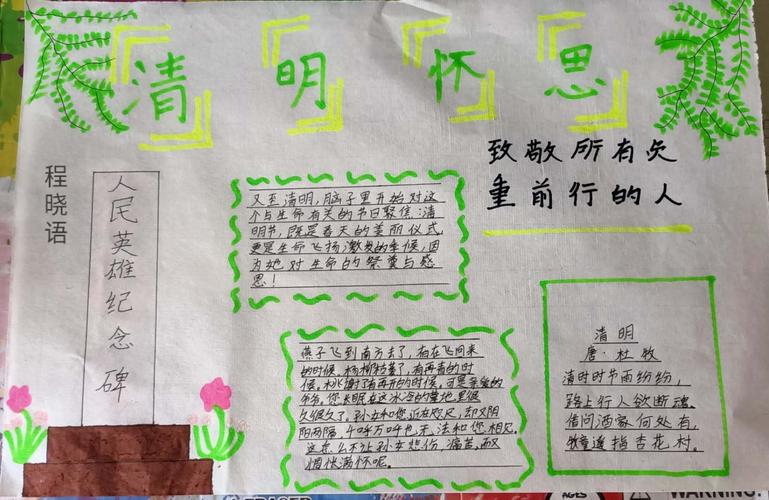 清明怀思
致敬所有负
重前行的人
程晓语
人民英雄纪念碑
又至清明，脑子里开始对这
个与生命有关的节日聚焦：清
明节，既是春天的美丽仪式
更是生命飞扬激发的季候，因
为她对生命的祭奠与感
恩！
燕子飞到南方去了，有在飞回来
的时候，杨柳枯萎了，有再青的时
候，桃谢了有再开的时候，可是亲爱的
爷爷，您长眠在这冰冷的墓地里很
久很久了，孙女和您近在咫尺，却又阴
阳两隔，千呼万呼也无法和您相见
这怎么不让孙女悲伤，痛苦，而又
惆怅满怀呢。
清明
唐·杜牧
清时时节雨纷纷，
路上行人欲断魂。
借问酒家何处有，
牧童遥指杏花村。
ERASER
WARNING